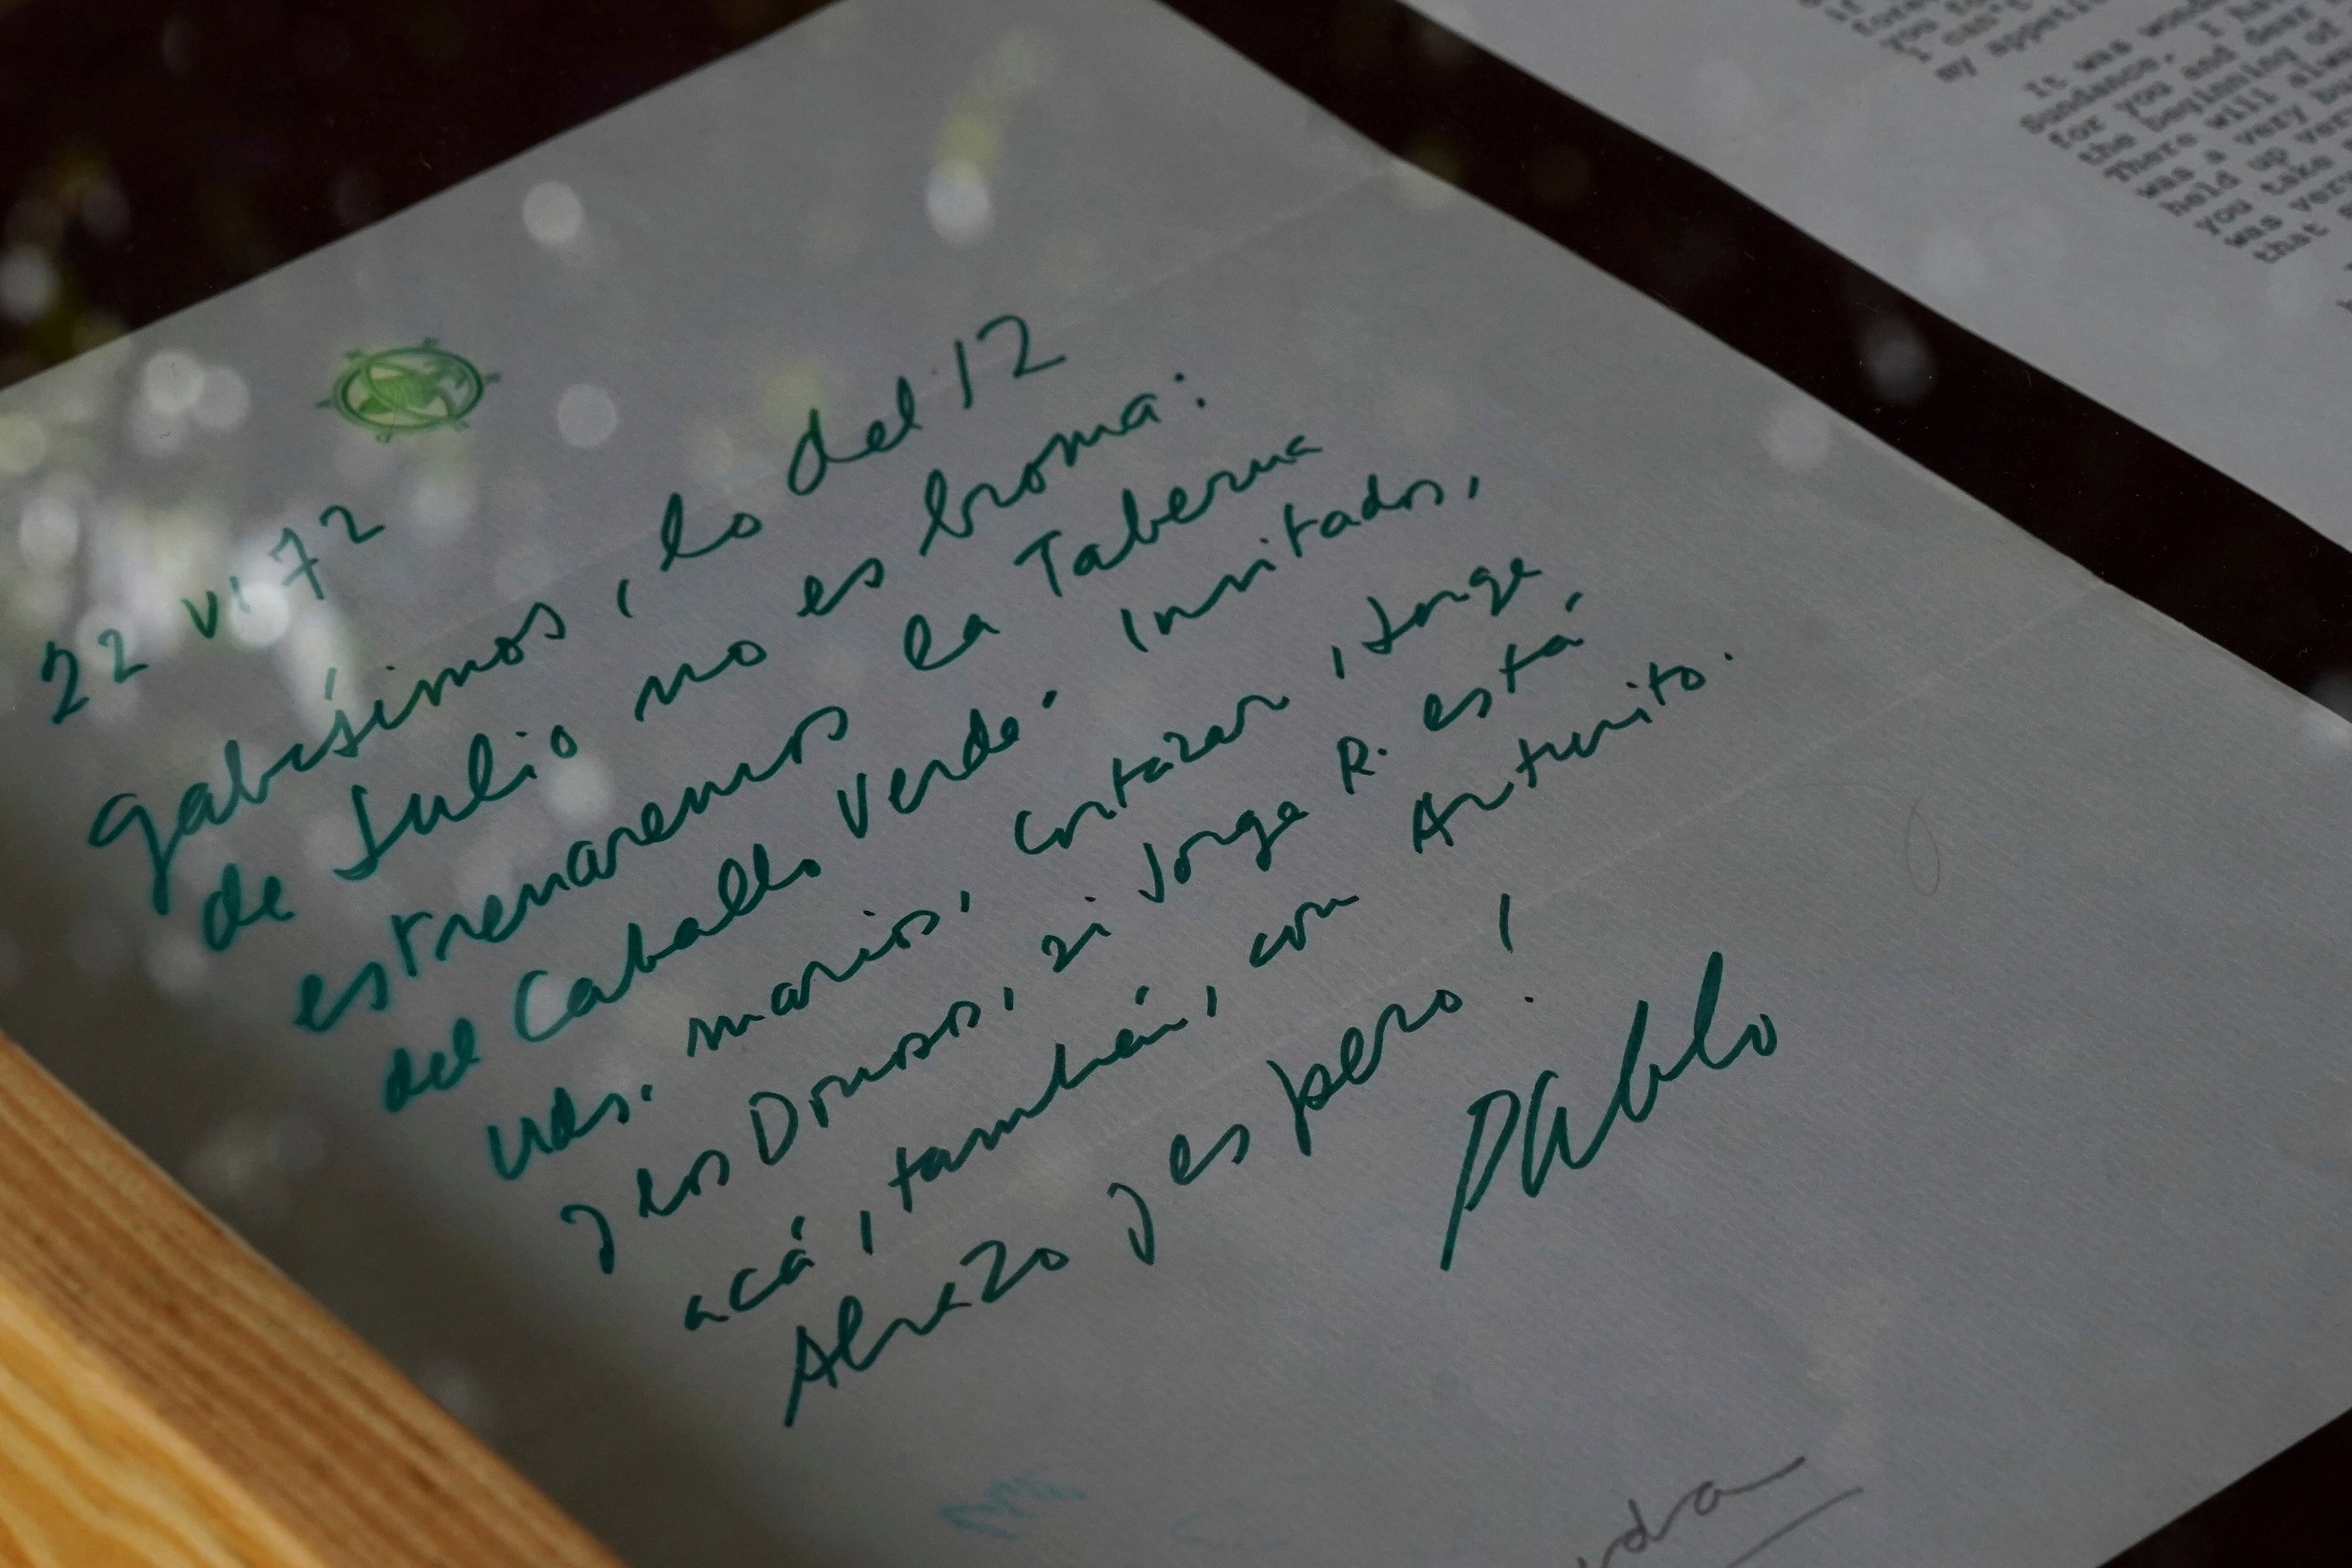 22 VI 72
Gabísimos, lo del 12
de Julio no es broma:
estrenaremos la Taberna
del Caballo Verde. Invitados,
Uds. marios, Cortazar, Jorge
y los Donosos, si Jorge R. está
acá, también, con Arturito.
Abrazo y espero!
Pablo
my appetit
It was won
Sundance, I ha
for you and dear
the beginning of
There will alw
was a very b
held up ver
you take
was very
that